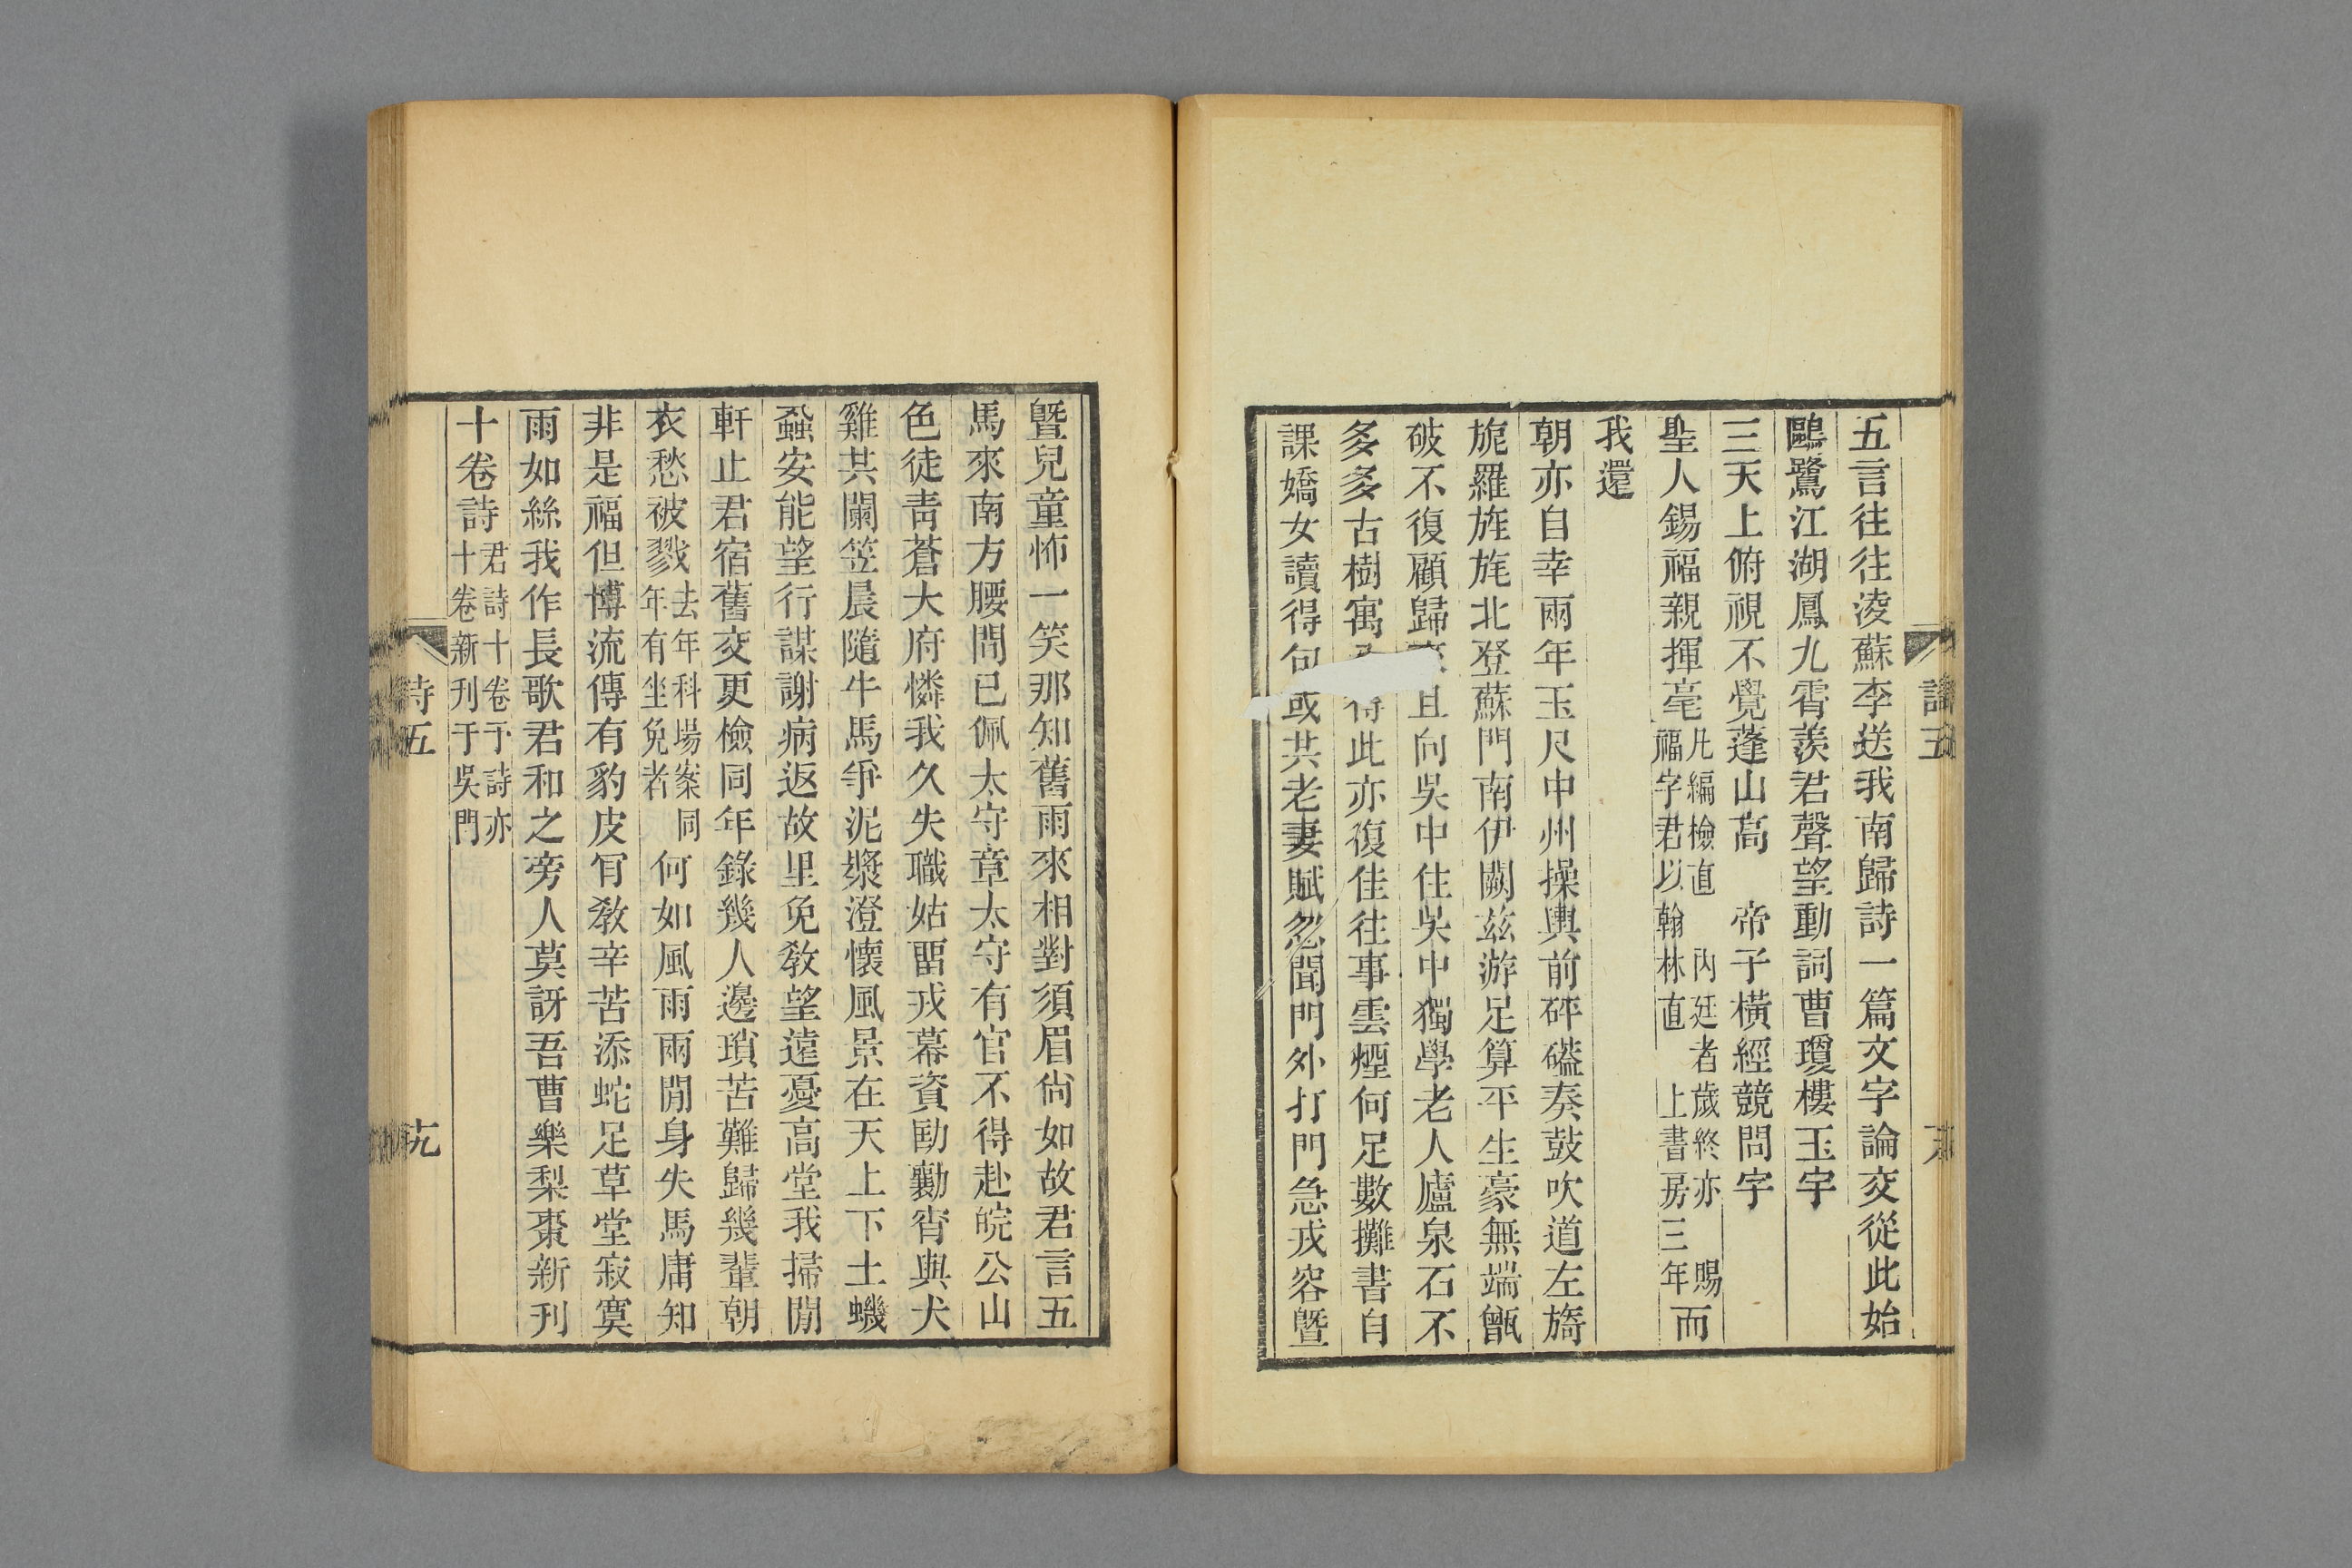 五言往往淩蘇李送我南歸詩一篇文字論交從此始
鷗鷺江湖鳳九霄羨君聲望動詞曹瓊樓玉宇
三天上俯視不覺蓬山高　帝子橫經競問字
聖人錫福親揮毫凡編檢直　內廷者歲終亦　賜福字君以翰林直　上書房三年而
我還
朝亦自幸兩年玉尺中州操輿前砰礚奏鼓吹道左旖
旎羅旌旄北登蘇門南伊闕茲游足算平生豪無端甑
破不復顧歸且向吳中住吳中獨學老人廬泉石不
多多古樹寓得此亦復佳往事雲煙何足數攤書自
課嬌女讀得句或共老妻賦忽聞門外打門急戎容曁
詩五
曁兒童怖一笑那知舊雨來相對須眉尙如故君言五
馬來南方腰間已佩太守章太守有官不得赴皖公山
色徒靑蒼大府憐我久失職姑畱戎幕資劻勷宵與犬
雞共闌笠晨隨牛馬爭泥漿澄懷風景在天上下土蟣
蝨安能望行謀謝病返故里免敎望遠憂高堂我掃閒
軒止君宿舊交更檢同年錄幾人邊瑣苦難歸幾輩朝
衣愁被戮去年科場案同年有坐免者何如風雨雨閒身失馬庸知
非是福但博流傳有豹皮肎敎辛苦添蛇足草堂寂寞
雨如絲我作長歌君和之旁人莫訝吾曹樂梨棗新刊
十卷詩君詩十卷予詩亦十卷新刊于吳門
詩五
十九